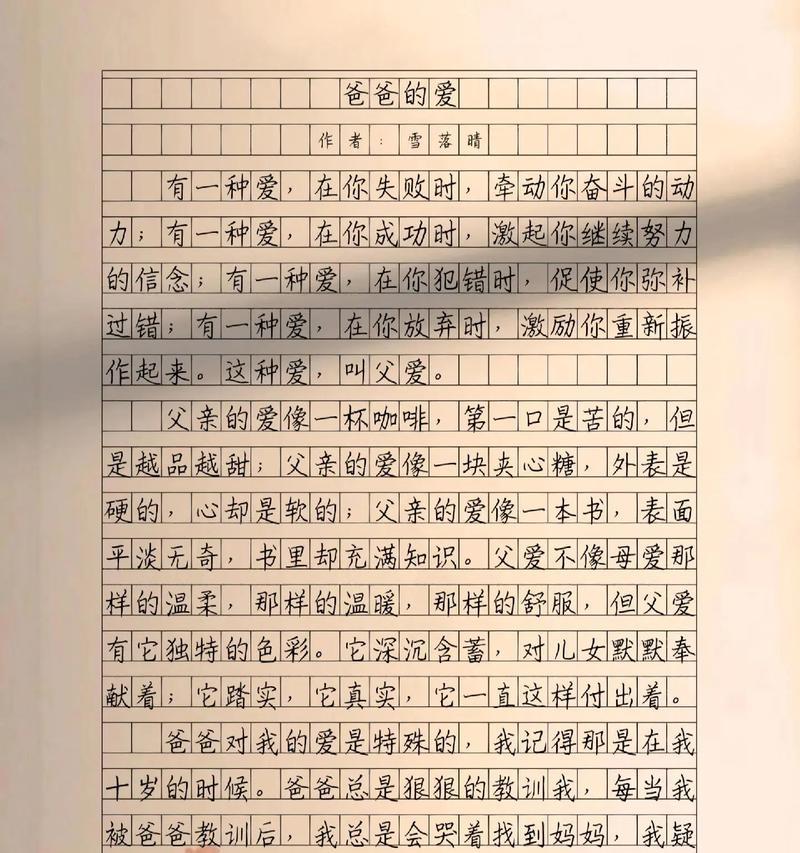 爸爸的爱
作者：雪落晴
有一种爱，在你失败时，牵动你奋斗的动
力；有一种爱，在你成功时，激起你继续努力
的信念；有一种爱，在你犯错时，促使你弥补
过错；有一种爱，在你放弃时，激励你重新振
作起来。这种爱，叫父爱。
父亲的爱像一杯咖啡，第一口是苦的，但
是越品越甜；父亲的爱像一块夹心糖，外表是
硬的，心却是软的；父亲的爱像一本书，表面
平淡无奇，书里却充满知识。父爱不像母爱那
样的温柔，那样的温暖，那样的舒服，但父爱
有它独特的色彩。它深沉含蓄，对儿女默默奉
献着；它踏实，它真实，它一直这样付出着。
爸爸对我的爱是特殊的，我记得那是在我
十岁的时候。爸爸总是狠狠的教训我，每当我
被爸爸教训后，我总是会哭着找到妈妈，我疑